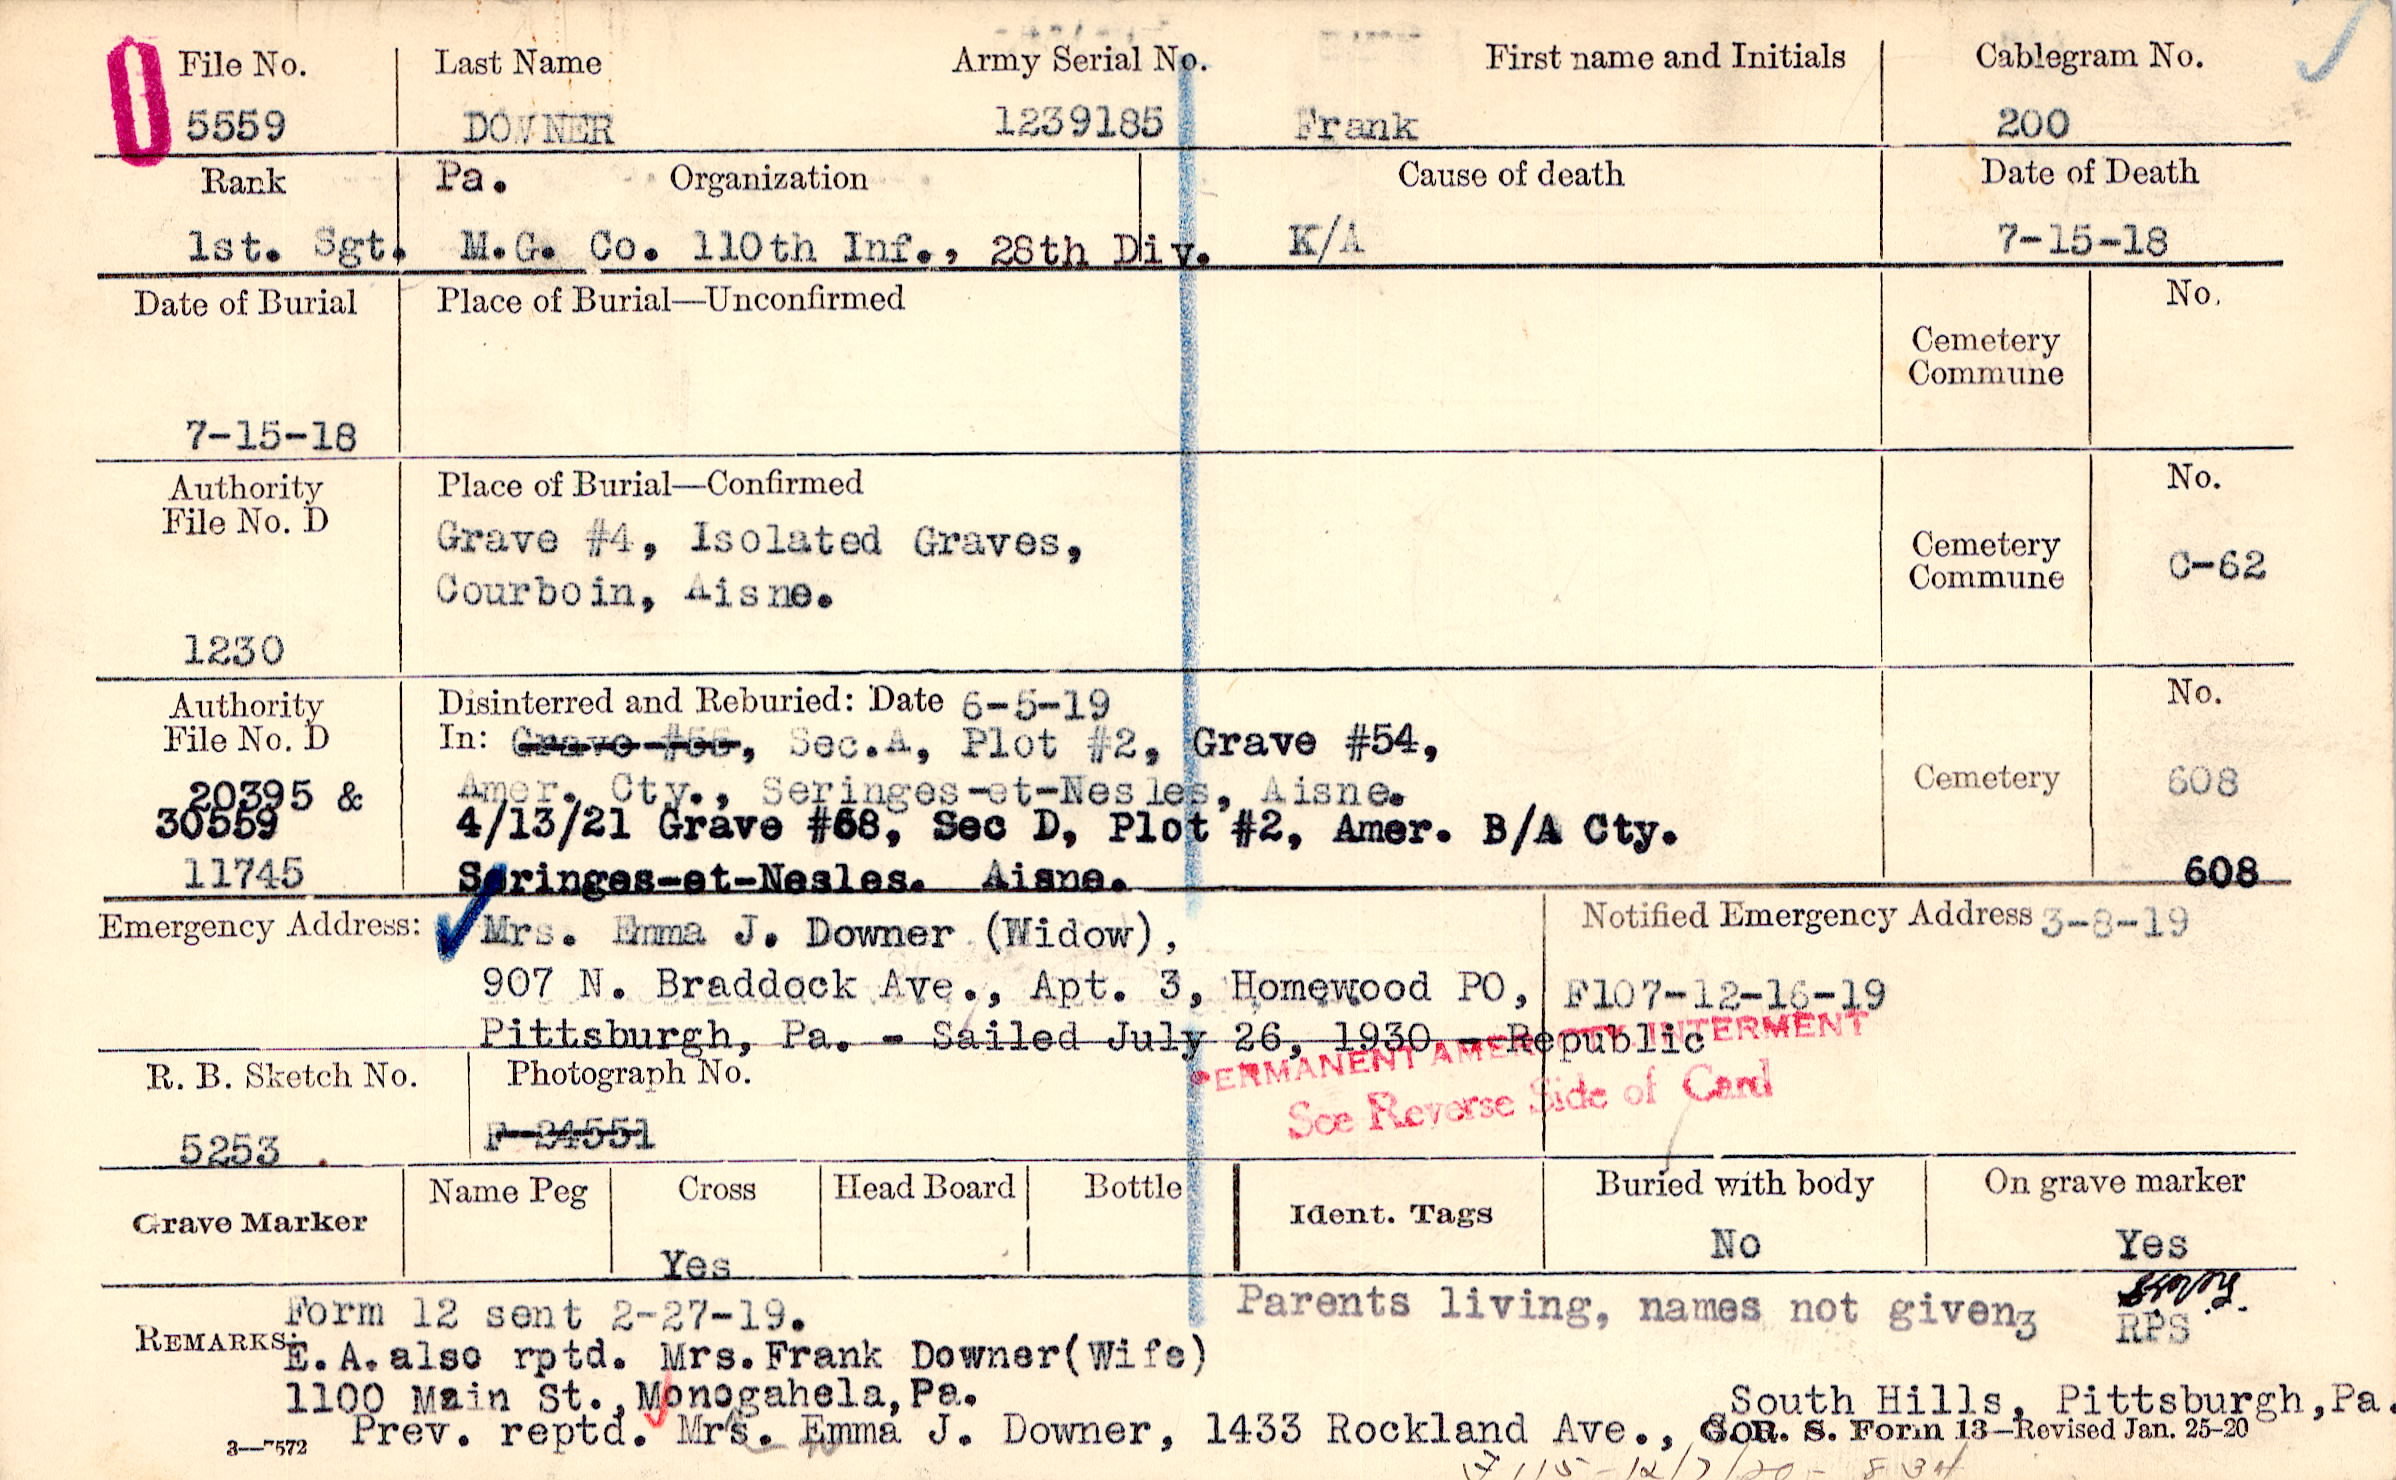 File No. Last Name Army Serial No. First name and Initials Cablegram No.
5559 DOWNER 1239185 Frank 200
Rank Pa. Organization Cause of death Date of Death
1st. Sgt. M.G. Co. 110th Inf., 28th Div. K/A 7-15-18
Date of Burial Place of Burial—Unconfirmed No.
Cemetery
Commune
7-15-18
Authority Place of Burial—Confirmed No.
File No. D
Grave #4, Isolated Graves, Cemetery
Courboin, Aisne. Commune C-62
1230
Authority Disinterred and Reburied: Date 6-5-19 No.
File No. D In: Grave , Sec.A, Plot #2, Grave #54,
20395 & Amer. Cty., Seringes-et-Nesles, Aisne. Cemetery 608
30559 4/13/21 Grave #68, Sec D, Plot #2, Amer. B/A Cty.
11745 Seringes-et-Nesles. Aisne. 608
Emergency Address: Mrs. Emma J. Downer (Widow), Notified Emergency Address 3-8-19
907 N. Braddock Ave., Apt. 3, Homewood PO, F107-12-16-19
Pittsburgh, Pa. - Sailed July 26, 1930 - Republic
PERMANENT INTERMENT
R. B. Sketch No. Photograph No. See Reverse Side of Card
5253 F-24551
Grave Marker Name Peg Cross Head Board Bottle Ident. Tags Buried with body On grave marker
Yes No Yes
Form 12 sent 2-27-19. Parents living, names not given3 RPS
REMARKS: E.A. also rptd. Mrs. Frank Downer(Wife)
1100 Main St., Monogahela, Pa. South Hills, Pittsburgh, Pa.
3—7572 Prev. reptd. Mrs. Emma J. Downer, 1433 Rockland Ave., G. R. S. Form 13—Revised Jan. 25-20